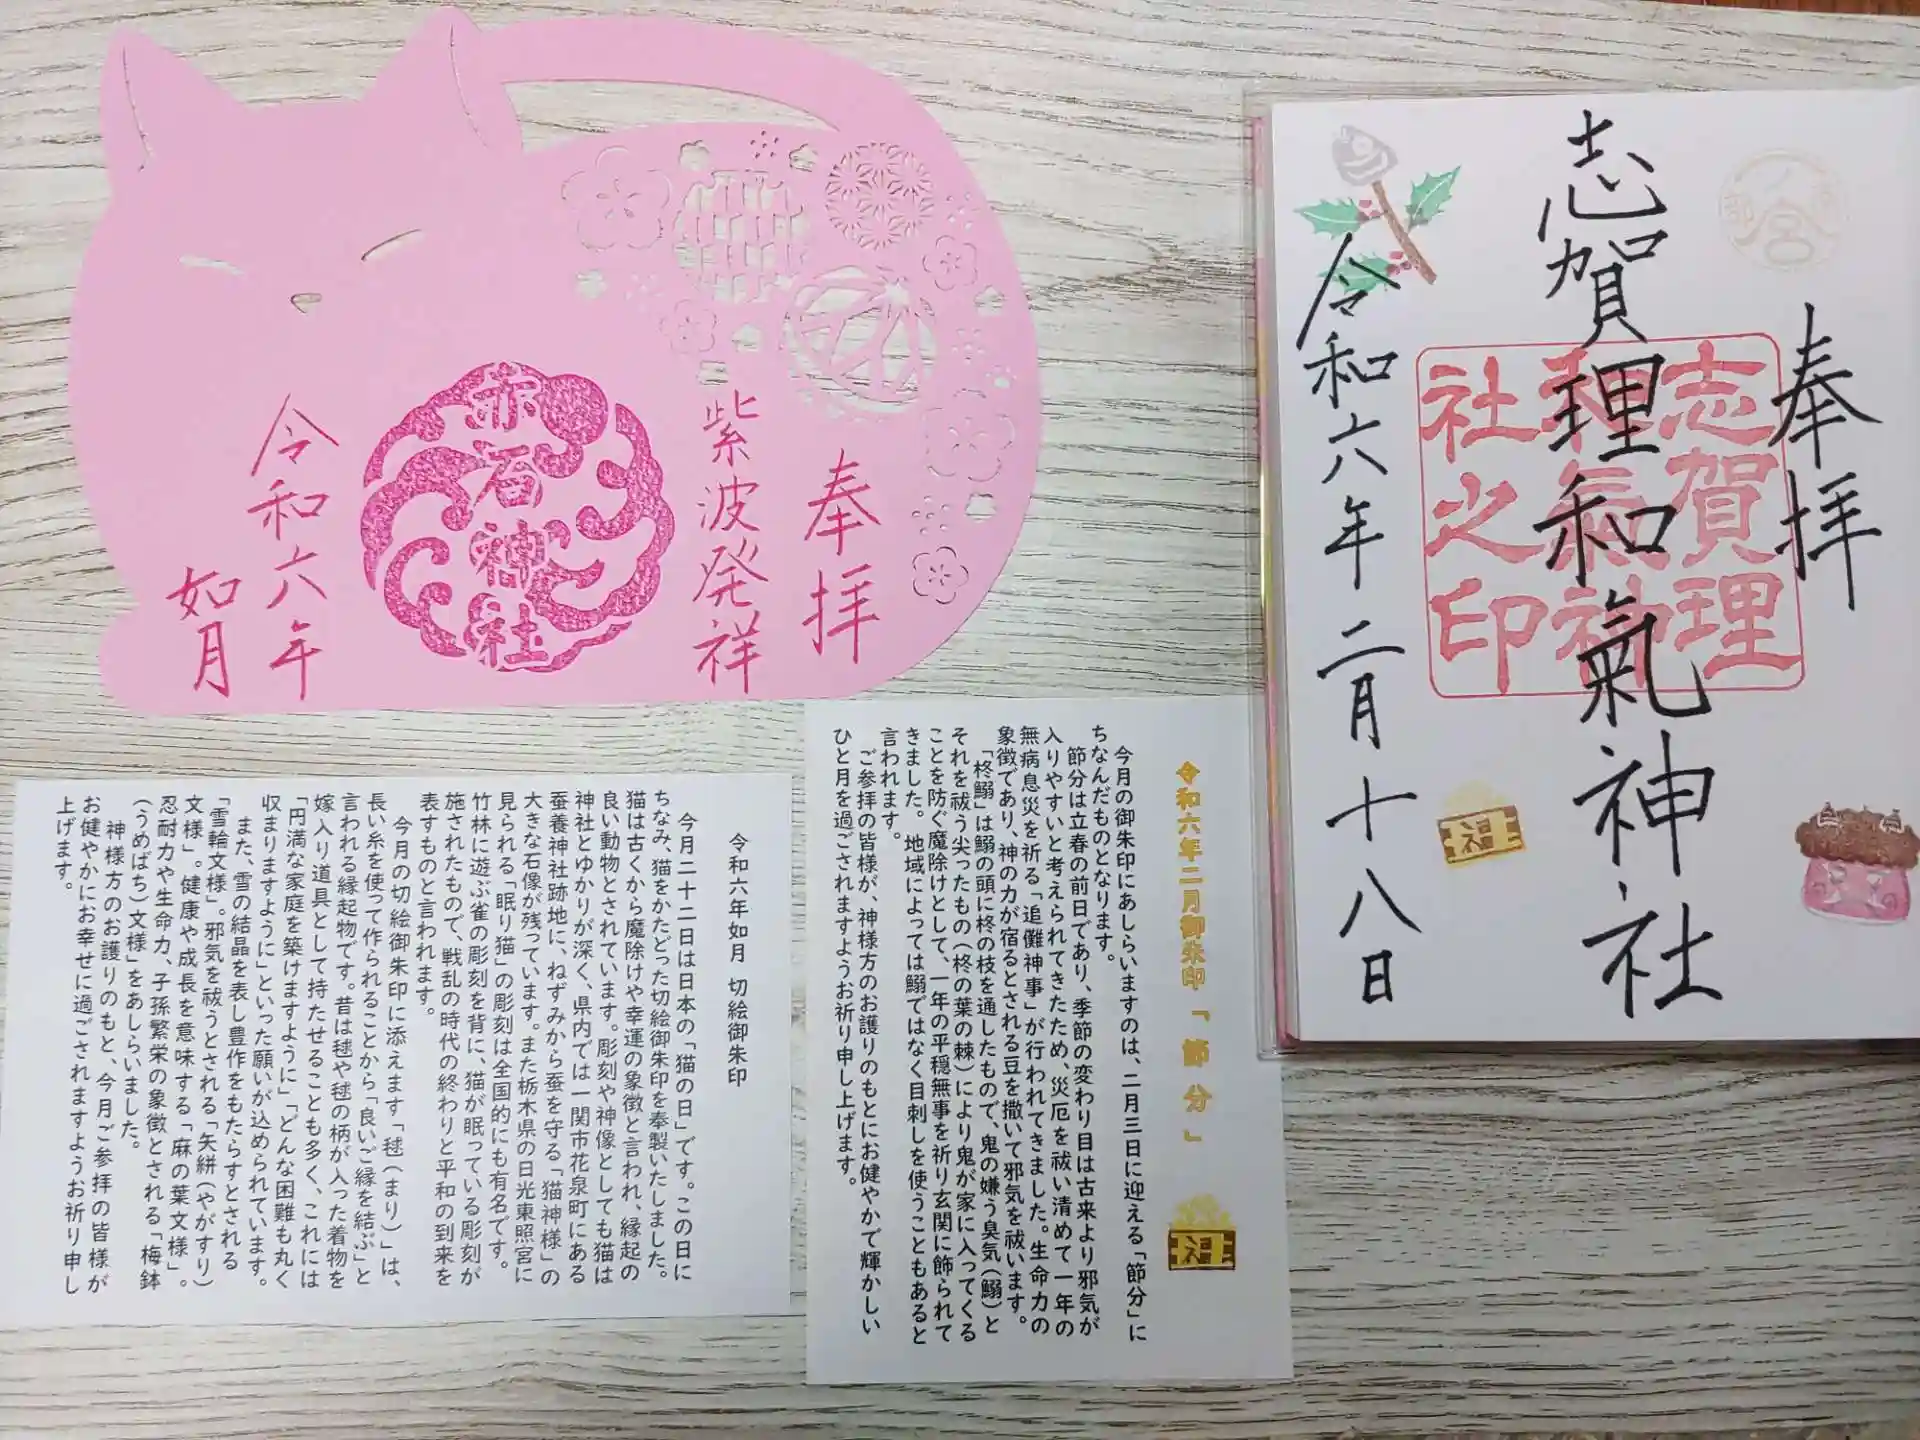 奉拝
紫波発祥
赤石神社
令和六年
如月
奉拝
志賀理和氣神社
志賀理
和氣神
社之印
令和六年二月十八日
福
令和六年二月御朱印「節分」
福
今月の御朱印にあしらいますのは、二月三日に迎える「節分」に
ちなんだものとなります。
節分は立春の前日であり、季節の変わり目は古来より邪気が
入りやすいと考えられてきたため、災厄を祓い清めて一年の
無病息災を祈る「追儺神事」が行われてきました。生命力の
象徴であり、神の力が宿るとされる豆を撒いて邪気を祓います。
「柊鰯」は鰯の頭に柊の枝を通したもので、鬼の嫌う臭気(鰯)と
それを祓う尖ったもの(柊の葉の棘)により鬼が家に入ってくる
ことを防ぐ魔除けとして、一年の平穏無事を祈り玄関に飾られて
きました。地域によっては鰯ではなく目刺しを使うこともあると
言われます。
ご参拝の皆様が、神様方のお護りのもとにお健やかで輝かしい
ひと月を過ごされますようお祈り申し上げます。
令和六年如月 切絵御朱印
今月二十二日は日本の「猫の日」です。この日に
ちなみ、猫をかたどった切絵御朱印を奉製いたしました。
猫は古くから魔除けや幸運の象徴と言われ、縁起の
良い動物とされています。彫刻や神像としても猫は
神社とゆかりが深く、県内では一関市花泉町にある
蚕養神社跡地に、ねずみから蚕を守る「猫神様」の
大きな石像が残っています。また栃木県の日光東照宮に
見られる「眠り猫」の彫刻は全国的にも有名です。
竹林に遊ぶ雀の彫刻を背に、猫が眠っている彫刻が
施されたもので、戦乱の時代の終わりと平和の到来を
表すものと言われます。
今月の切絵御朱印に添えます「毬(まり)」は、
長い糸を使って作られることから「良いご縁を結ぶ」と
言われる縁起物です。昔は毬や毬の柄が入った着物を
嫁入り道具として持たせることも多く、これには
「円満な家庭を築けますように」「どんな困難も丸く
収まりますように」といった願いが込められています。
また、雪の結晶を表し豊作をもたらすとされる
「雪輪文様」。邪気を祓うとされる「矢絣(やがすり)
文様」。健康や成長を意味する「麻の葉文様」。
忍耐力や生命力、子孫繁栄の象徴とされる「梅鉢
(うめばち)文様」をあしらいました。
神様方のお護りのもと、今月ご参拝の皆様が
お健やかにお幸せに過ごされますようお祈り申し
上げます。